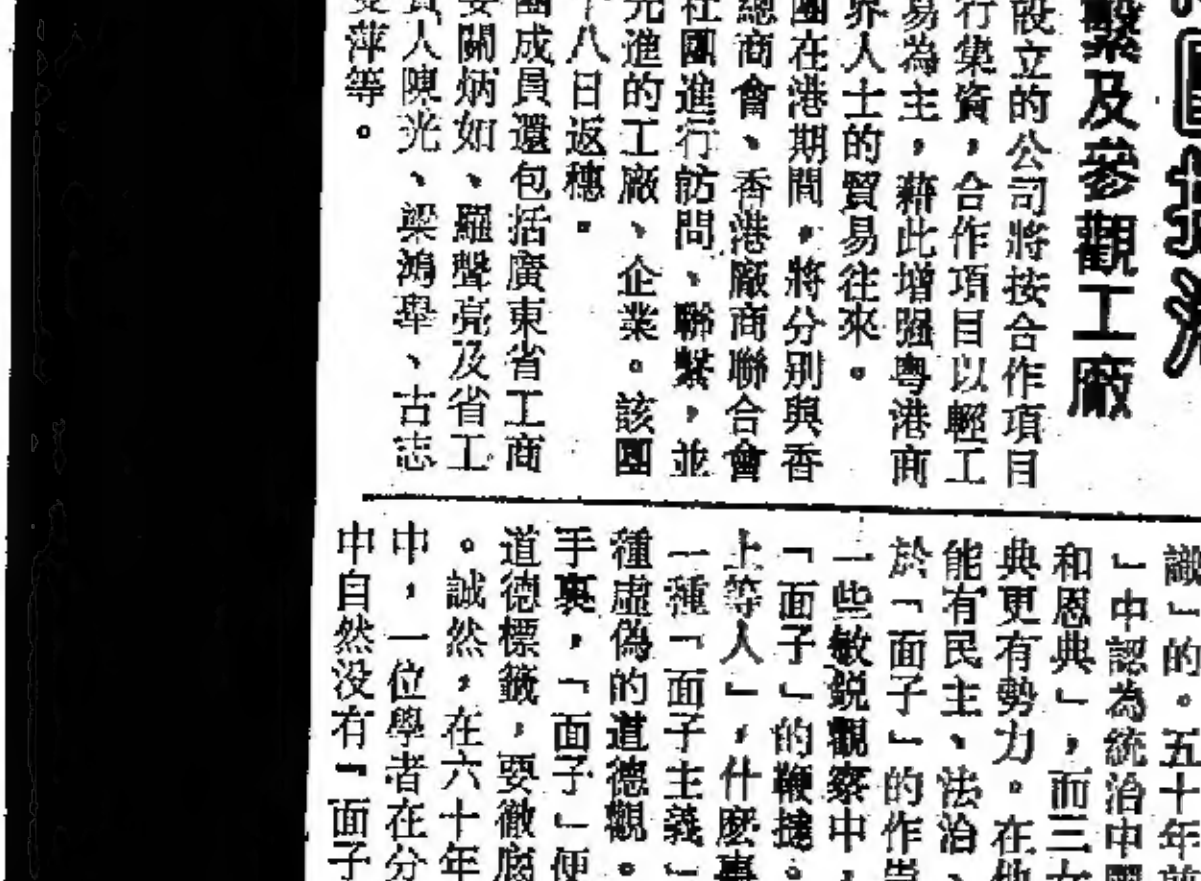 繫及參觀工廠
設立的公司將按合作項目
行集資，合作項目以輕工
易為主，藉此增强粤港商
界人士的貿易往來。
團在港期間，將分別與香
總商會、香港廠商聯合會
社團進行訪問、聯繫，並
先進的工廠、企業。該團
十八日返穗。
團成員還包括廣東省工商
委關炳如、羅聲亮及省工
人陳光、梁鴻舉、古志
萍等。
識」的。五十年前
」中認為統治中國
和恩典」，而三女
典更有勢力。在他
能有民主、法治、
於「面子」的作祟
一些敏鋭觀察中，
「面子」的鞭撻。
上等人」，什麽事
一種「面子主義」
種虛偽的道德觀。
手裏，「面子」便
道德標籤，要徹底
。誠然，在六十年
中，一位學者在分
中自然没有「面子